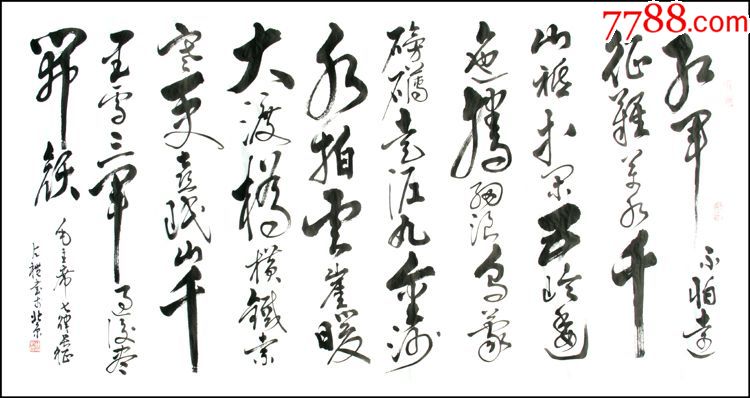 7788.com
红军不怕遠
征難萬水千
山祗等闲五岭逶
迤腾细浪乌蒙
磅礴走泥丸金沙
水拍雲崖暖
大渡橋横鐵索
寒更喜岷山千
里雪三軍過後尽
開颜
毛主席七律长征
书于北京